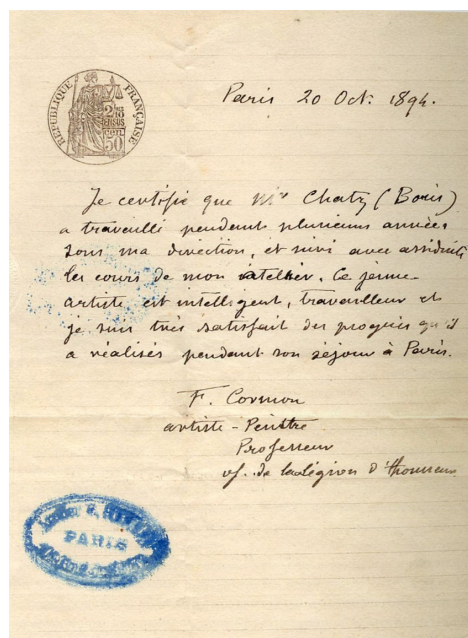 RÉPUBLIQUE FRANÇAISE
2/10 EN SUS
50 cen.
Paris 20 Oct. 1894.
Je certifie que Mr Chatz (Boris)
a travaillé pendant plusieurs années
sous ma direction, et suivi avec assiduité
les cours de mon attelier. Ce jeune
artiste est intelligent, travailleur et
je suis très satisfait des progrès qu'il
a réalisés pendant son séjour à Paris.
F. Cormon
artiste-Peintre
Professeur
of. de la légion d'honneur
PARIS